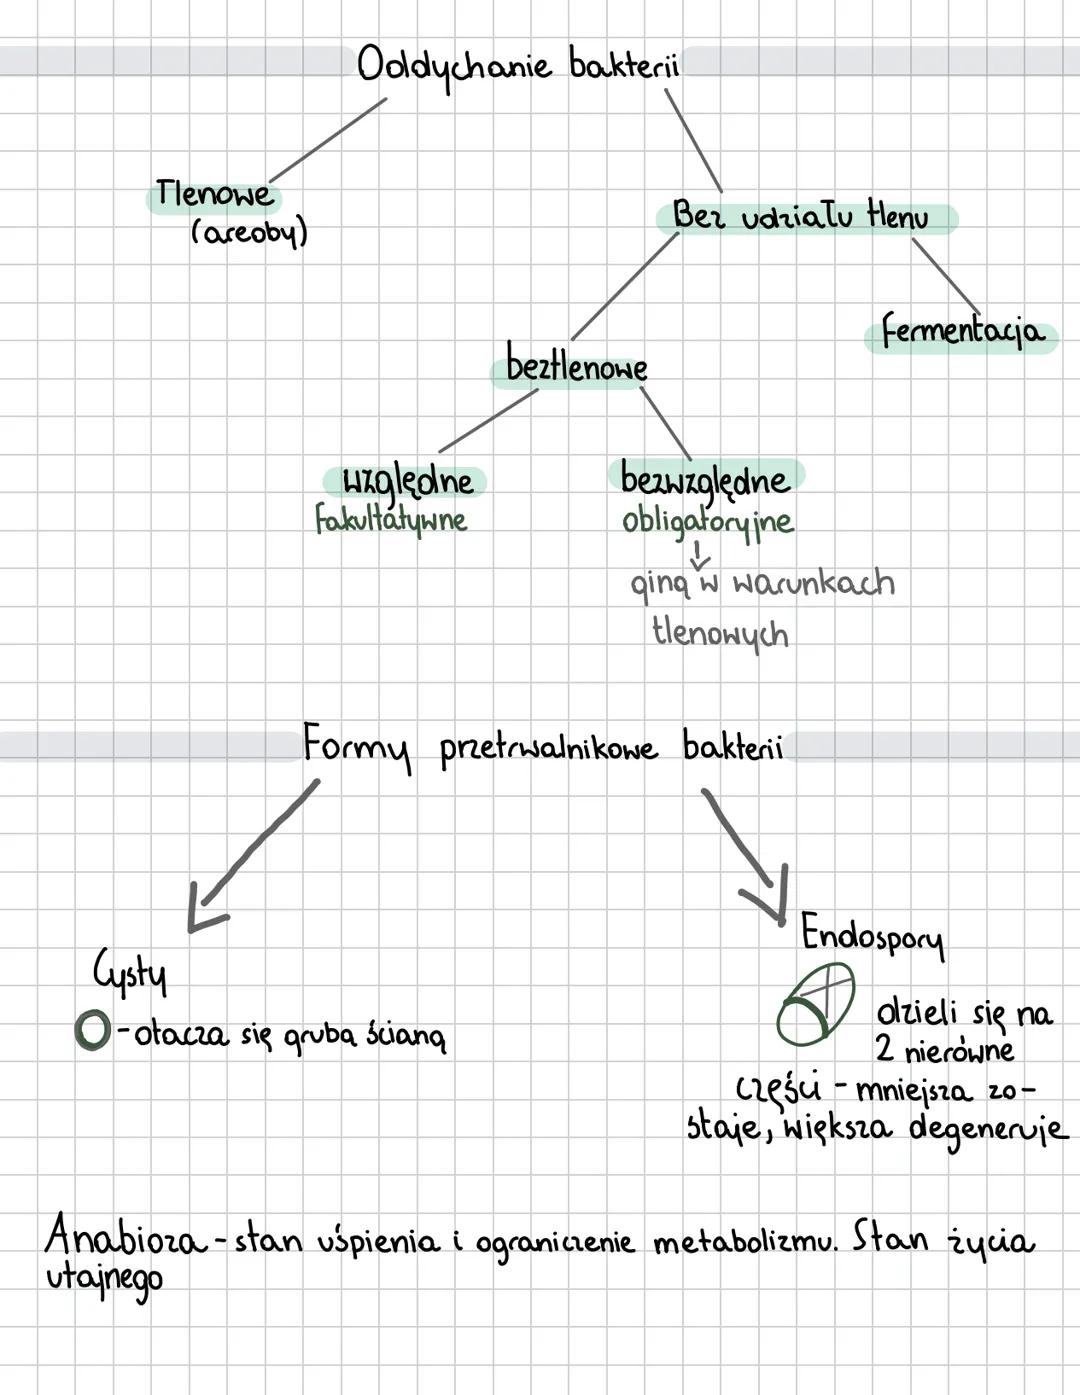 Oddychanie bakterii
Tlenowe
(areoby)
Bez udziału tlenu
fermentacja
beztlenowe
względne
fakultatywne
bezwzględne
obligatoryjne
giną w warunkach
tlenowych
Formy przetrwalnikowe bakterii
Cysty
- otacza się grubą ścianą
Endospory
dzieli się na
2 nierówne
części - mniejsza zo-
staje, większa degeneruje
Anabioza - stan uśpienia i ograniczenie metabolizmu. Stan życia
utajnego